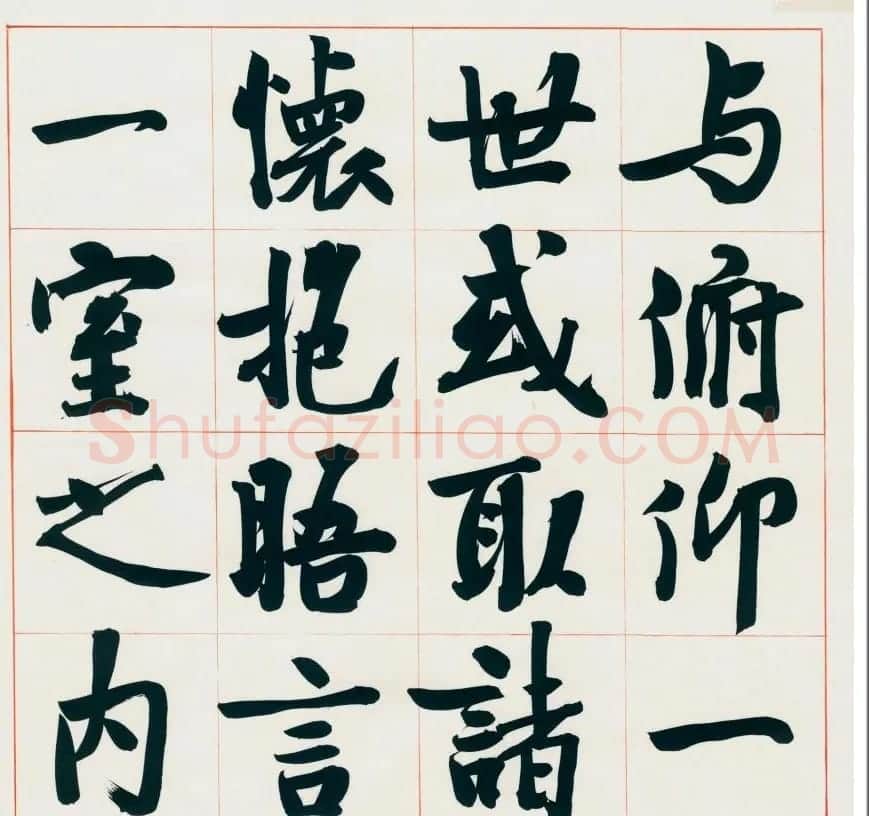 与俯仰一
世或取諸
懷抱晤言
一室之内
Shufaziliao.COM